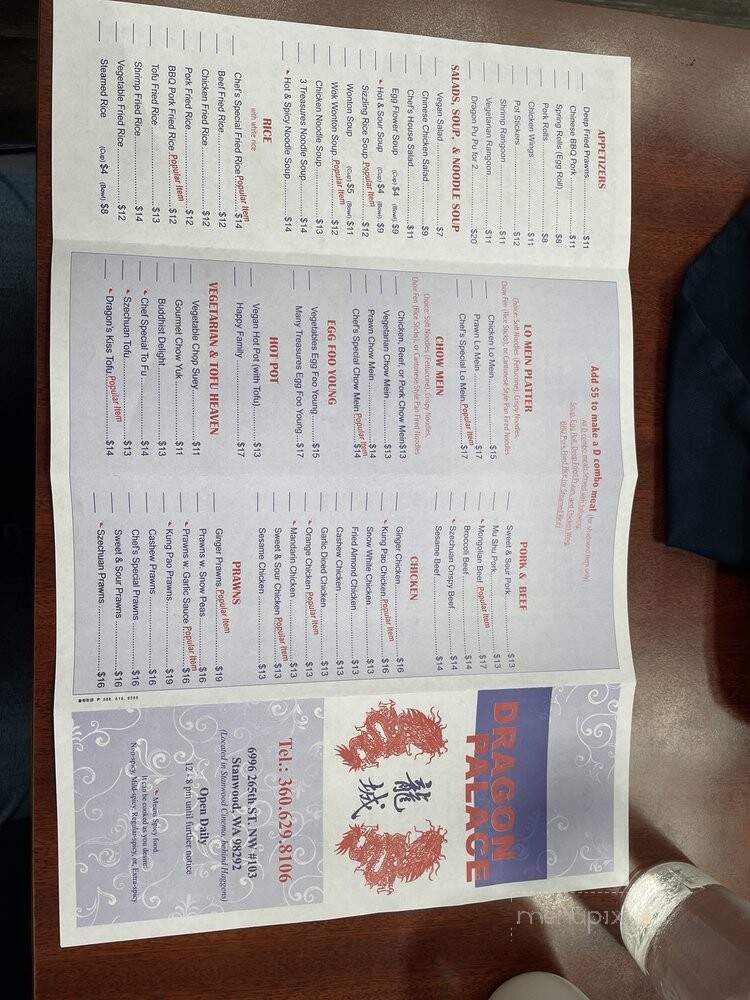 APPETIZERS
Deep Fried Prawns $11
Chinese BBQ Pork $11
Spring Rolls (Egg Roll) $8
Pork Rolls $8
Chicken Wings $11
Pot Stickers $12
Shrimp Rangoon $11
Vegetarian Rangoon $11
Dragon Pu Pu for 2 $20
SALADS, SOUP, & NOODLE SOUP
Vegan Salad $7
Chinese Chicken Salad $9
Chef's House Salad $11
Egg Flower Soup (Cup) $4 (Bowl) $9
Hot & Sour Soup (Cup) $4 (Bowl) $9
Sizzling Rice Soup Popular Item $12
Wonton Soup (Cup) $5 (Bowl) $11
Wok Wonton Soup Popular Item $12
Chicken Noodle Soup $13
3 Treasures Noodle Soup $14
Hot & Spicy Noodle Soup $14
RICE
with white rice
Chef's Special Fried Rice Popular Item $14
Beef Fried Rice $12
Chicken Fried Rice $12
Pork Fried Rice $12
BBQ Pork Fried Rice Popular Item $12
Tofu Fried Rice $13
Shrimp Fried Rice $14
Vegetable Fried Rice $12
Steamed Rice (Cup) $4 (Bowl) $8
Add $5 to make a D combo meal (for checked item only)
All D combo meals served with following:
Soup, Egg Roll, Deep Fried Prawn, and Chicken Wing
BBQ Pork Fried Rice (or Steamed Rice)
LO MEIN PLATTER
Choice: Soft Noodles (Fettucine), Crispy Noodles,
Chow Fen (Rice Sticks), or Cantonese Style Pan Fried Noodles
Chicken Lo Mein $15
Prawn Lo Mein $17
Chef's Special Lo Mein Popular Item $17
CHOW MEIN
Choice: Soft Noodles (Fettucine), Crispy Noodles,
Chow Fen (Rice Sticks), or Cantonese Style Pan Fried Noodles
Chicken, Beef, or Pork Chow Mein $13
Vegetarian Chow Mein $13
Prawn Chow Mein $14
Chef's Special Chow Mein Popular Item $14
EGG FOO YOUNG
Vegetables Egg Foo Young $15
Many Treasures Egg Foo Young $17
HOT POT
Vegan Hot Pot (with Tofu) $13
Happy Family $17
VEGETARIAN & TOFU HEAVEN
Vegetable Chop Suey $11
Gourmet Chow Yuk $11
Buddhist Delight $13
Chef Special To Fu $14
Szechuan Tofu $13
Dragon's Kiss Tofu Popular Item $14
PORK & BEEF
Sweet & Sour Pork $13
Mu Shu Pork $13
Mongolian Beef Popular Item $17
Broccoli Beef $14
Szechuan Crispy Beef $14
Sesame Beef $14
CHICKEN
Ginger Chicken $16
Kung Pao Chicken Popular Item $16
Snow White Chicken $13
Fried Almond Chicken $13
Cashew Chicken $13
Garlic Diced Chicken $13
Orange Chicken Popular Item $13
Mandarin Chicken $13
Sweet & Sour Chicken Popular Item $13
Sesame Chicken $13
PRAWNS
Ginger Prawns Popular Item $19
Prawns w. Snow Peas $16
Prawns w. Garlic Sauce Popular Item $16
Kung Pao Prawns $19
Cashew Prawns $16
Chef's Special Prawns $16
Sweet & Sour Prawns $16
Szechuan Prawns $16
DRAGON
PALACE
龍城
Tel.: 360.629.8106
6996 265th ST. NW #103
Stanwood, WA 98292
(Located in Stanwood Cinema, behind Haggens)
Open Daily
12 - 8 pm until further notice
Means Spicy food.
It can be cooked as you desire:
Non-spicy, Mild-spicy, Regular-spicy, or, Extra-spicy.
menupix